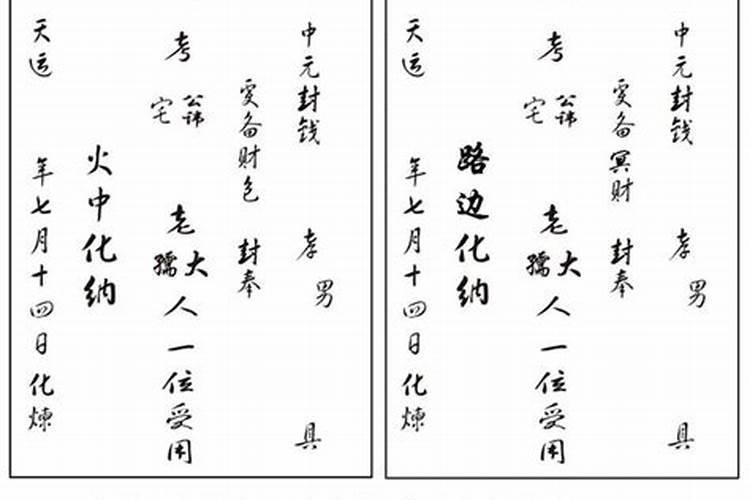 中元封钱 孝 男 具
爰备冥财 封奉
考 公讳 宅 老 大 孺 人一位受用
路边化纳
天运 年七月十四日化煉
中元封钱 孝 男 具
爰备财包 封奉
考 公讳 宅 老 大 孺 人一位受用
火中化纳
天运 年七月十四日化煉